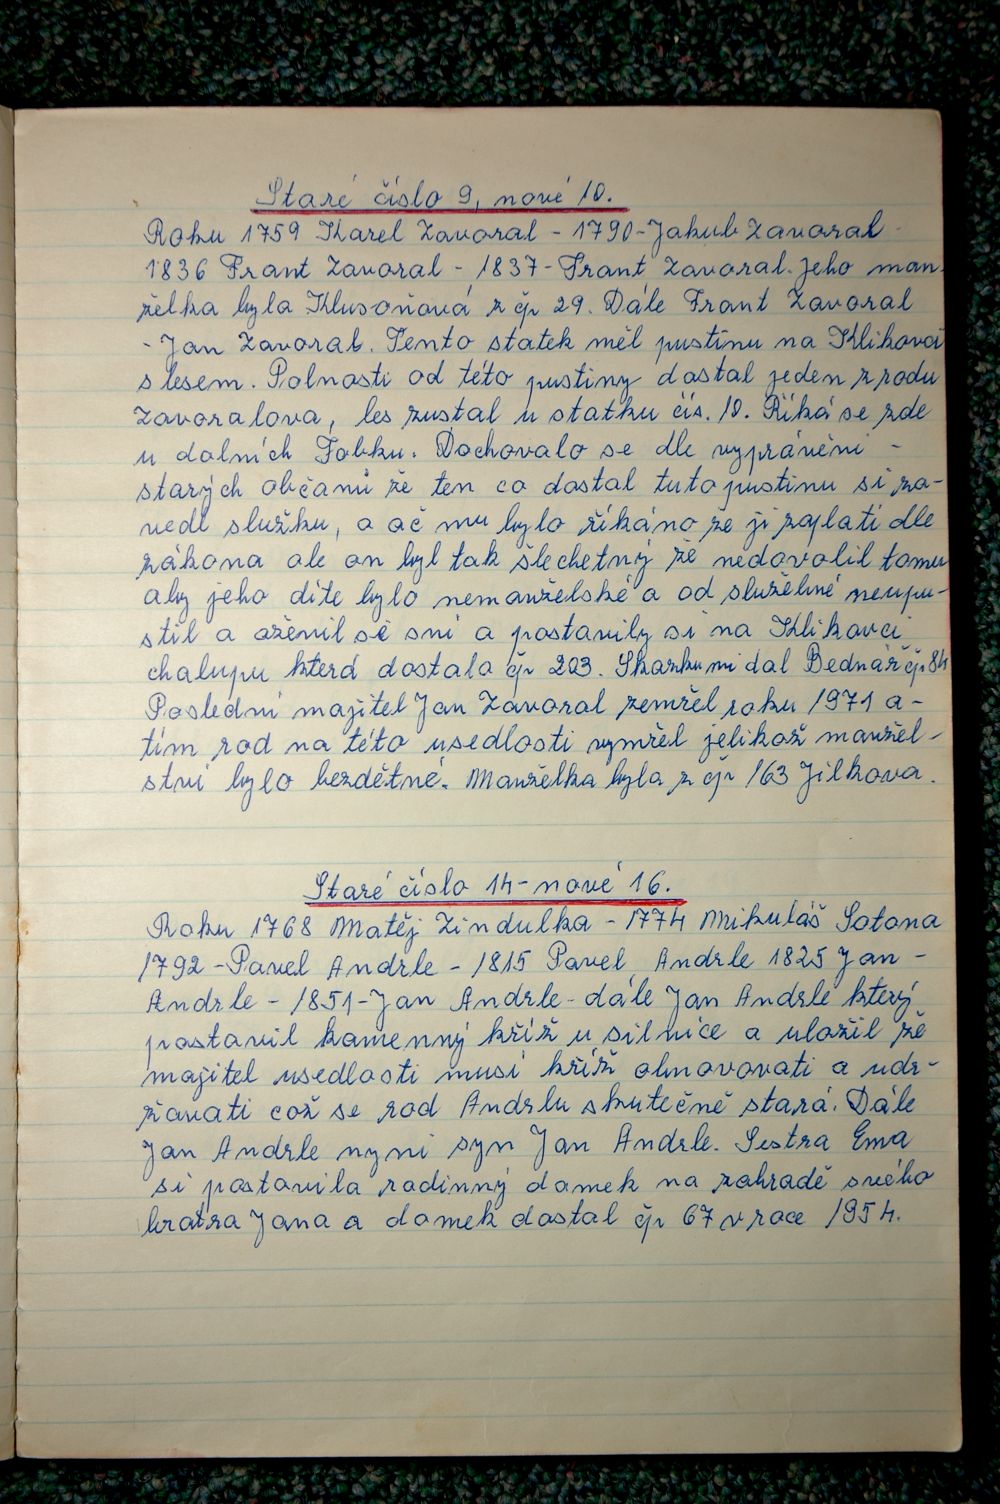 Staré číslo 9, nové 10.
Roku 1759 Karel Zavoral - 1790 - Jakub Zavoral -
1836 Frant Zavoral - 1837 - Frant Zavoral. Jeho man-
želka byla Klusoňová z čp 29. Dále Frant Zavoral
- Jan Zavoral. Tento statek měl pustinu na Klikovci
s lesem. Polnosti od této pustiny dostal jeden z rodu
Zavoralova, les zustal u statku čís. 10. Říká se zde
u dolních Fobku. Dochovalo se dle vyprávěni -
starých občanů že ten co dostal tuto pustinu si za-
vedl služku, a ač mu bylo říkáno že ji zaplatí dle
zákona ale on byl tak šlechetný že nedovolil tomu
aby jeho díte bylo nemanželské a od služebné neupu-
stil a oženil se sni a postavily si na Klikovci
chalupu která dostala čp 203. Skazku mi dal Bednář čp 84
Posledni majitel Jan Zavoral zemřel roku 1971 a -
tím rod na této usedlosti vymřel jelikož manžel-
ství bylo bezdětné. Manželka byla z čp 163 Jilkova.
Staré číslo 14 - nové 16.
Roku 1768 Matěj Zindulka - 1774 Mikuláš Sotona
1792 - Pavel Andrle - 1815 Pavel Andrle 1825 Jan -
Andrle - 1851 - Jan Andrle - dále Jan Andrle který
postavil kamenný kříž u silnice a uložil že
majitel usedlosti musí kříž obnovovati a udr-
žovati což se rod Andrlu skutečně stará. Dále
Jan Andrle nyni syn Jan Andrle. Sestra Ema
si postavila rodinný domek na zahradě svého
bratra Jana a domek dostal čp 67 v roce 1954.